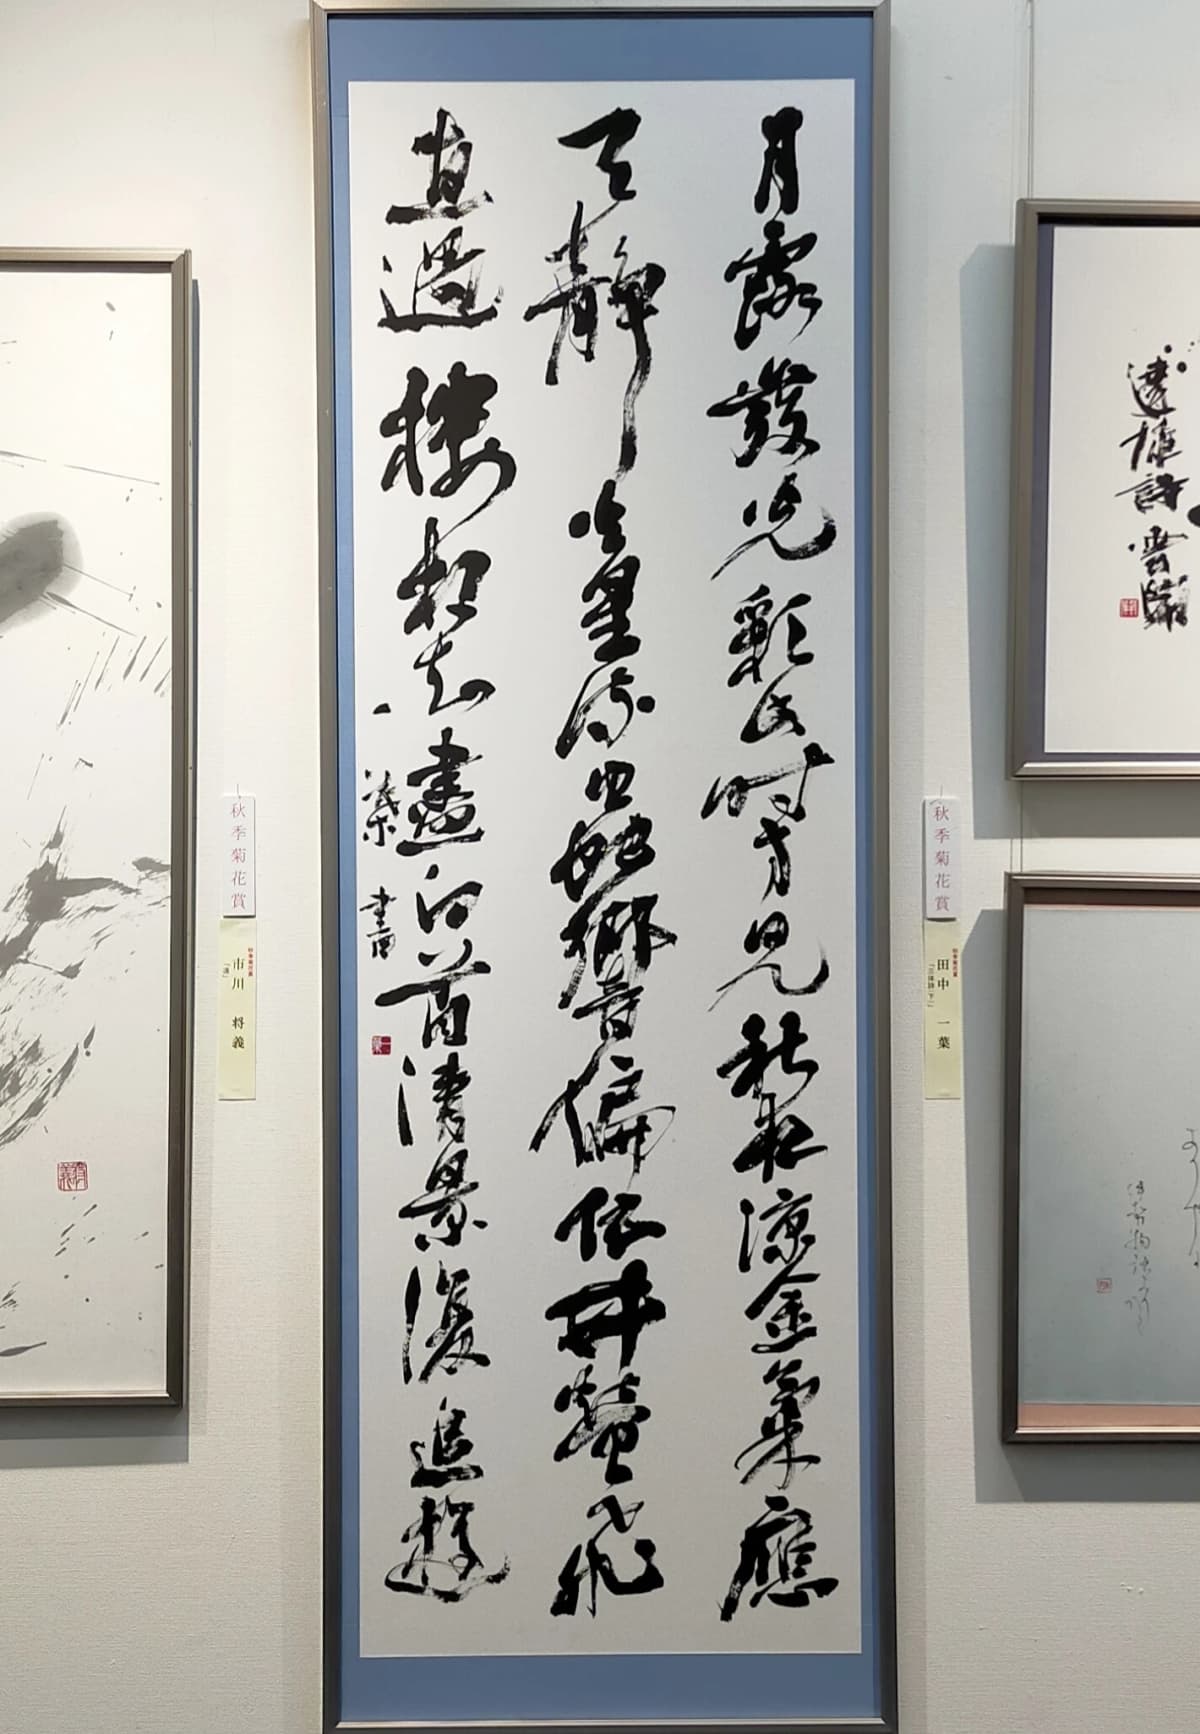 月露發光彩此時方見秋夜涼金氣應
天靜火星流蟲響偏依井螢飛
直過樓相知盡白首清景復追遊
一葉書
秋季菊花賞
秋季菊花賞
田中 一葉
秋季菊花賞
秋季菊花賞
市川 将義